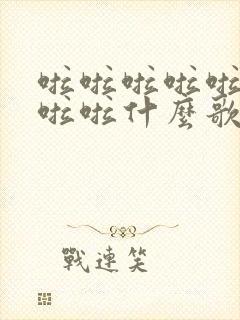 啦啦啦啦啦
啦啦什麼歌
戰連笑